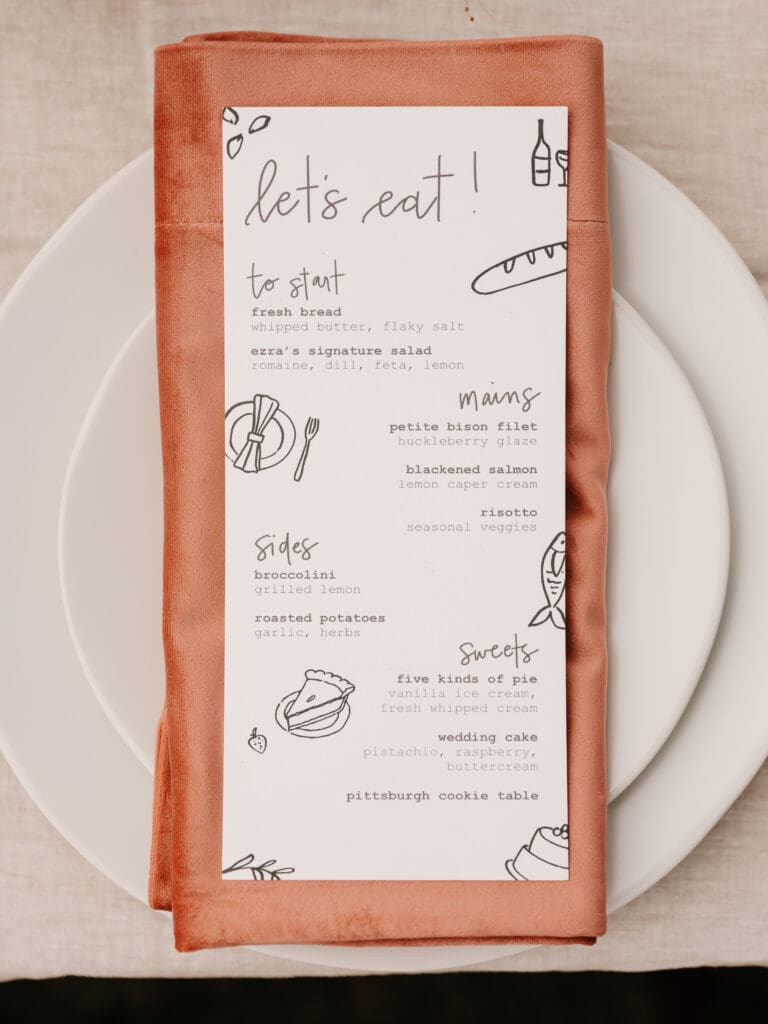 let's eat!
to start
fresh bread
whipped butter, flaky salt
ezra's signature salad
romaine, dill, feta, lemon
mains
petite bison filet
huckleberry glaze
blackened salmon
lemon caper cream
risotto
seasonal veggies
sides
broccolini
grilled lemon
roasted potatoes
garlic, herbs
sweets
five kinds of pie
vanilla ice cream,
fresh whipped cream
wedding cake
pistachio, raspberry,
buttercream
pittsburgh cookie table